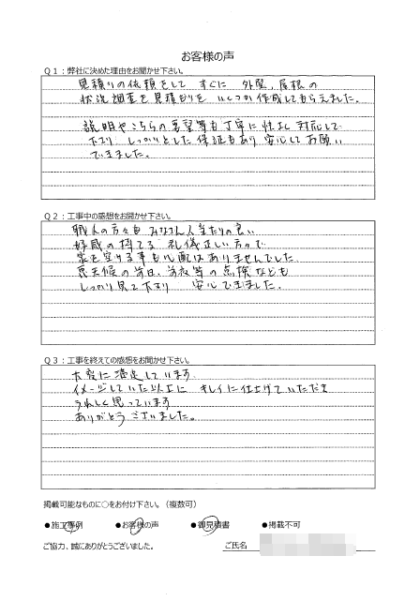 お客様の声
Q1：弊社に決めた理由をお聞かせ下さい。
見積りの依頼をして すぐに 外壁、屋根の
状況調査と見積りを いくつか作成してもらえました。
説明やこちらの要望等も丁寧に 対応して
下さり、しっかりとした保証もあり 安心してお願い
できました。
Q2：工事中の感想をお聞かせ下さい。
職人の方々も みなさん人当たりの良い
好感の持てる 礼儀正しい方々で
家を空ける事も心配はありませんでした。
悪天候の 等の点検なども
しっかり見て下さり 安心できました。
Q3：工事を終えての感想をお聞かせ下さい。
大変に満足しています。
イメージしていた以上に キレイに仕上げていただき
うれしく思っています
ありがとうございました。
掲載可能なものに○をお付け下さい。（複数可）
●施工事例 ●お客様の声 ●御見積書 ●掲載不可
ご協力、誠にありがとうございました。 ご氏名